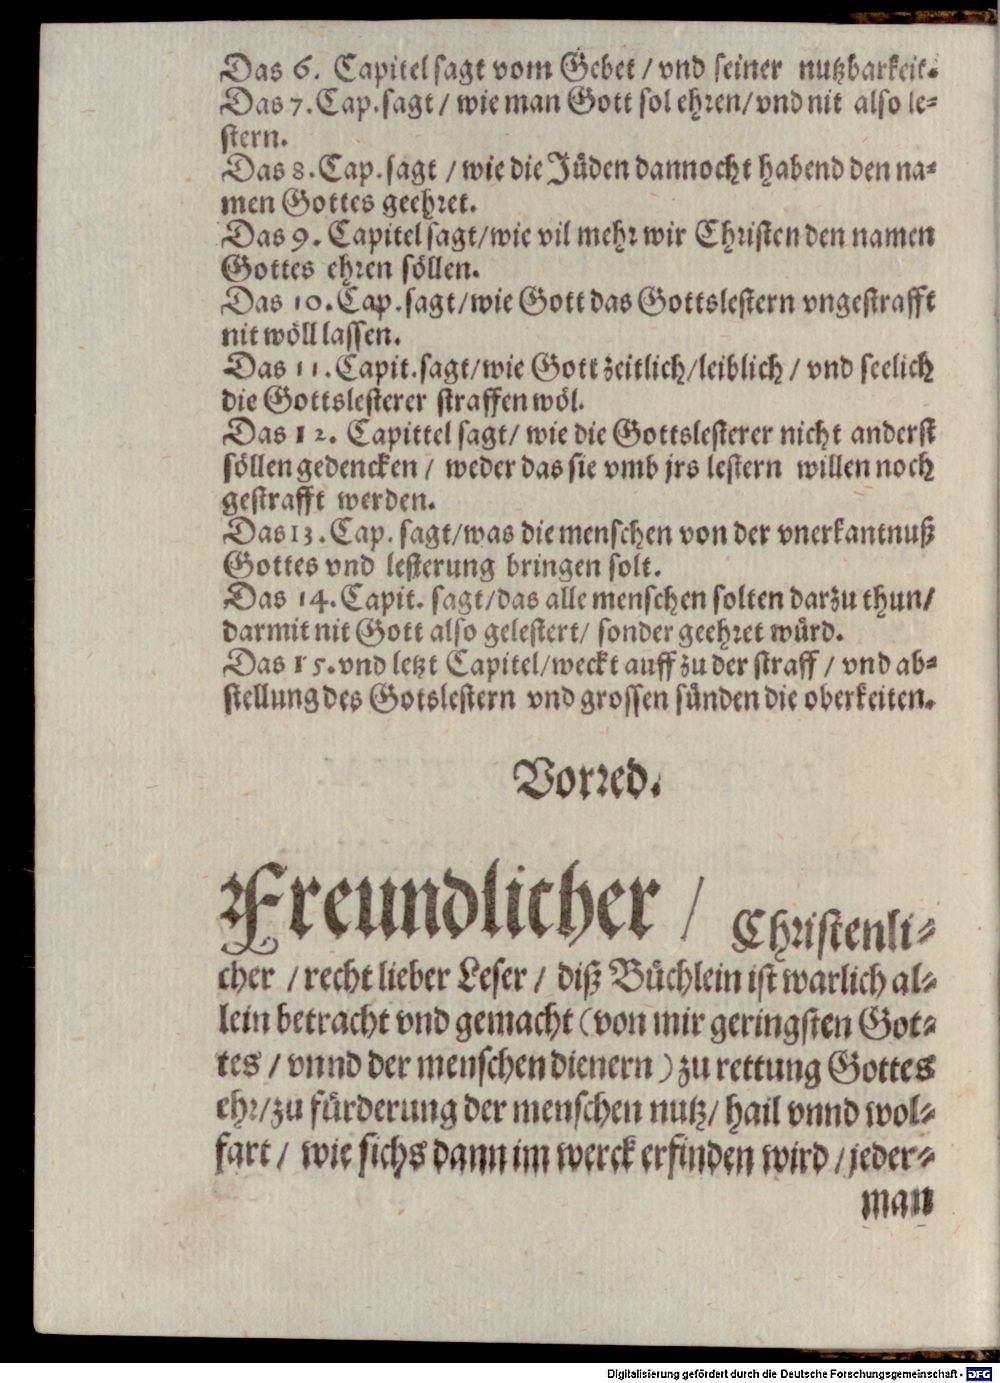 Das 6. Capitel sagt vom Gebet / vnd seiner nutzbarkeit.
Das 7. Cap. sagt / wie man Gott sol ehren / vnd nit also le⸗
stern.
Das 8. Cap. sagt / wie die Jüden dannocht habend den na⸗
men Gottes geehret.
Das 9. Capitel sagt / wie vil mehr wir Christen den namen
Gottes ehren söllen.
Das 10. Cap. sagt / wie Gott das Gottslestern vngestrafft
nit wöll lassen.
Das 11. Capit. sagt / wie Gott zeitlich / leiblich / vnd seelich
die Gottslesterer straffen wöl.
Das 12. Capittel sagt / wie die Gottslesterer nicht anderst
söllen gedencken / weder das sie vmb jrs lestern willen noch
gestrafft werden.
Das 13. Cap. sagt / was die menschen von der vnerkantnuß
Gottes vnd lesterung bringen solt.
Das 14. Capit. sagt / das alle menschen solten darzu thun /
darmit nit Gott also gelestert / sonder geehret würd.
Das 15. vnd letzt Capitel / weckt auff zu der straff / vnd ab⸗
stellung des Gotslestern vnd grossen sünden die oberkeiten.
Vorred.
Freundlicher / Christenli⸗
cher / recht lieber Leser / diß Büchlein ist warlich al⸗
lein betracht vnd gemacht (von mir geringsten Got⸗
tes / vnnd der menschen dienern) zu rettung Gottes
ehr / zu fürderung der menschen nutz / hail vnnd wol⸗
fart / wie sichs dann im werck erfinden wird / jeder⸗
man
Digitalisierung gefördert durch die Deutsche Forschungsgemeinschaft - DFG